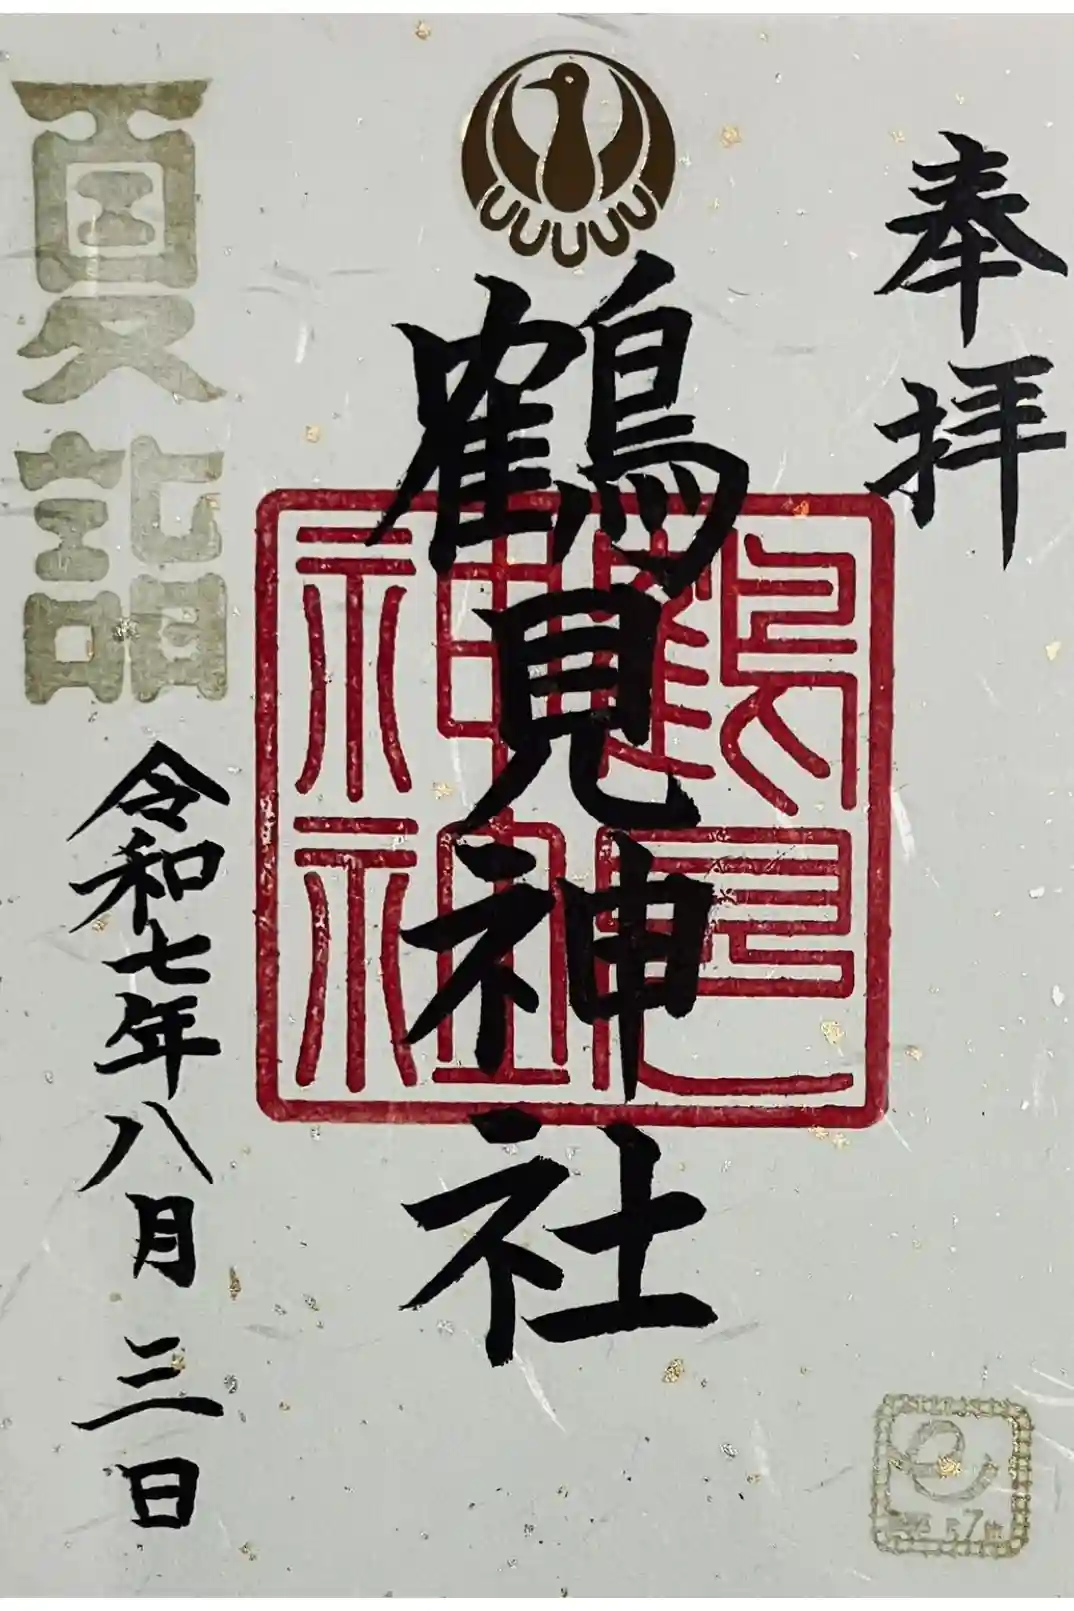 奉拝
鶴見神社
鶴見
神社
夏詣
令和七年八月三日